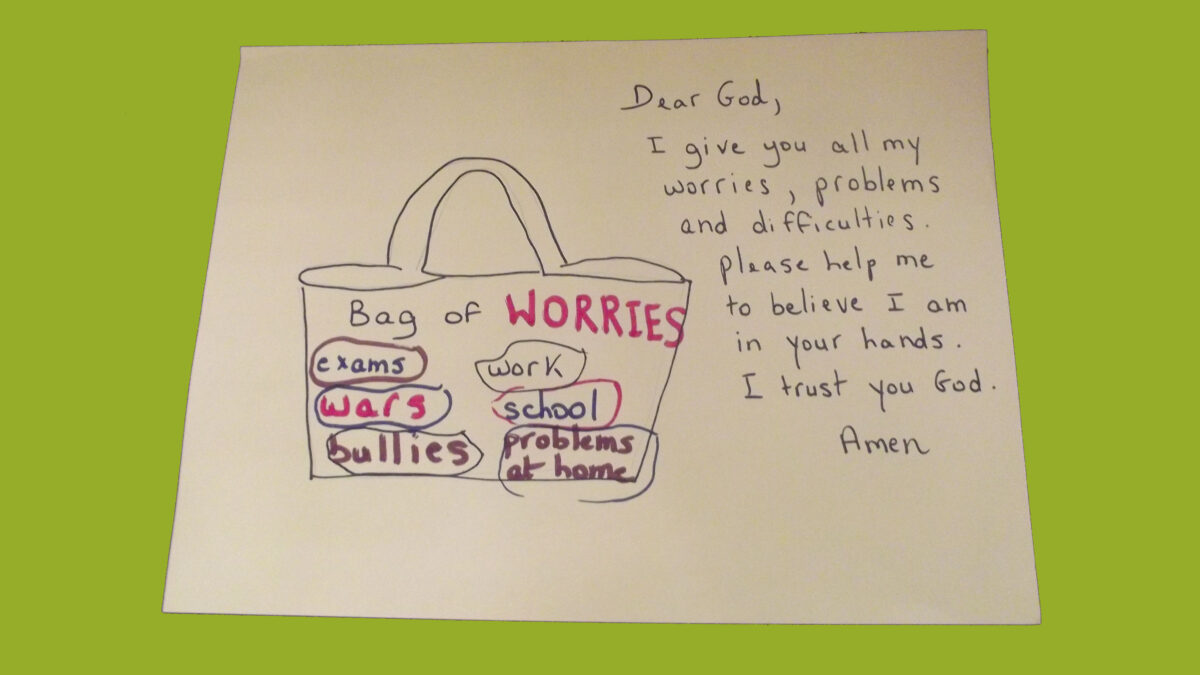 Dear God,
I give you all my
worries, problems
and difficulties.
please help me
to believe I am
in your hands.
I trust you God.
Amen
Bag of WORRIES
exams
work
wars
school
bullies
problems
at home